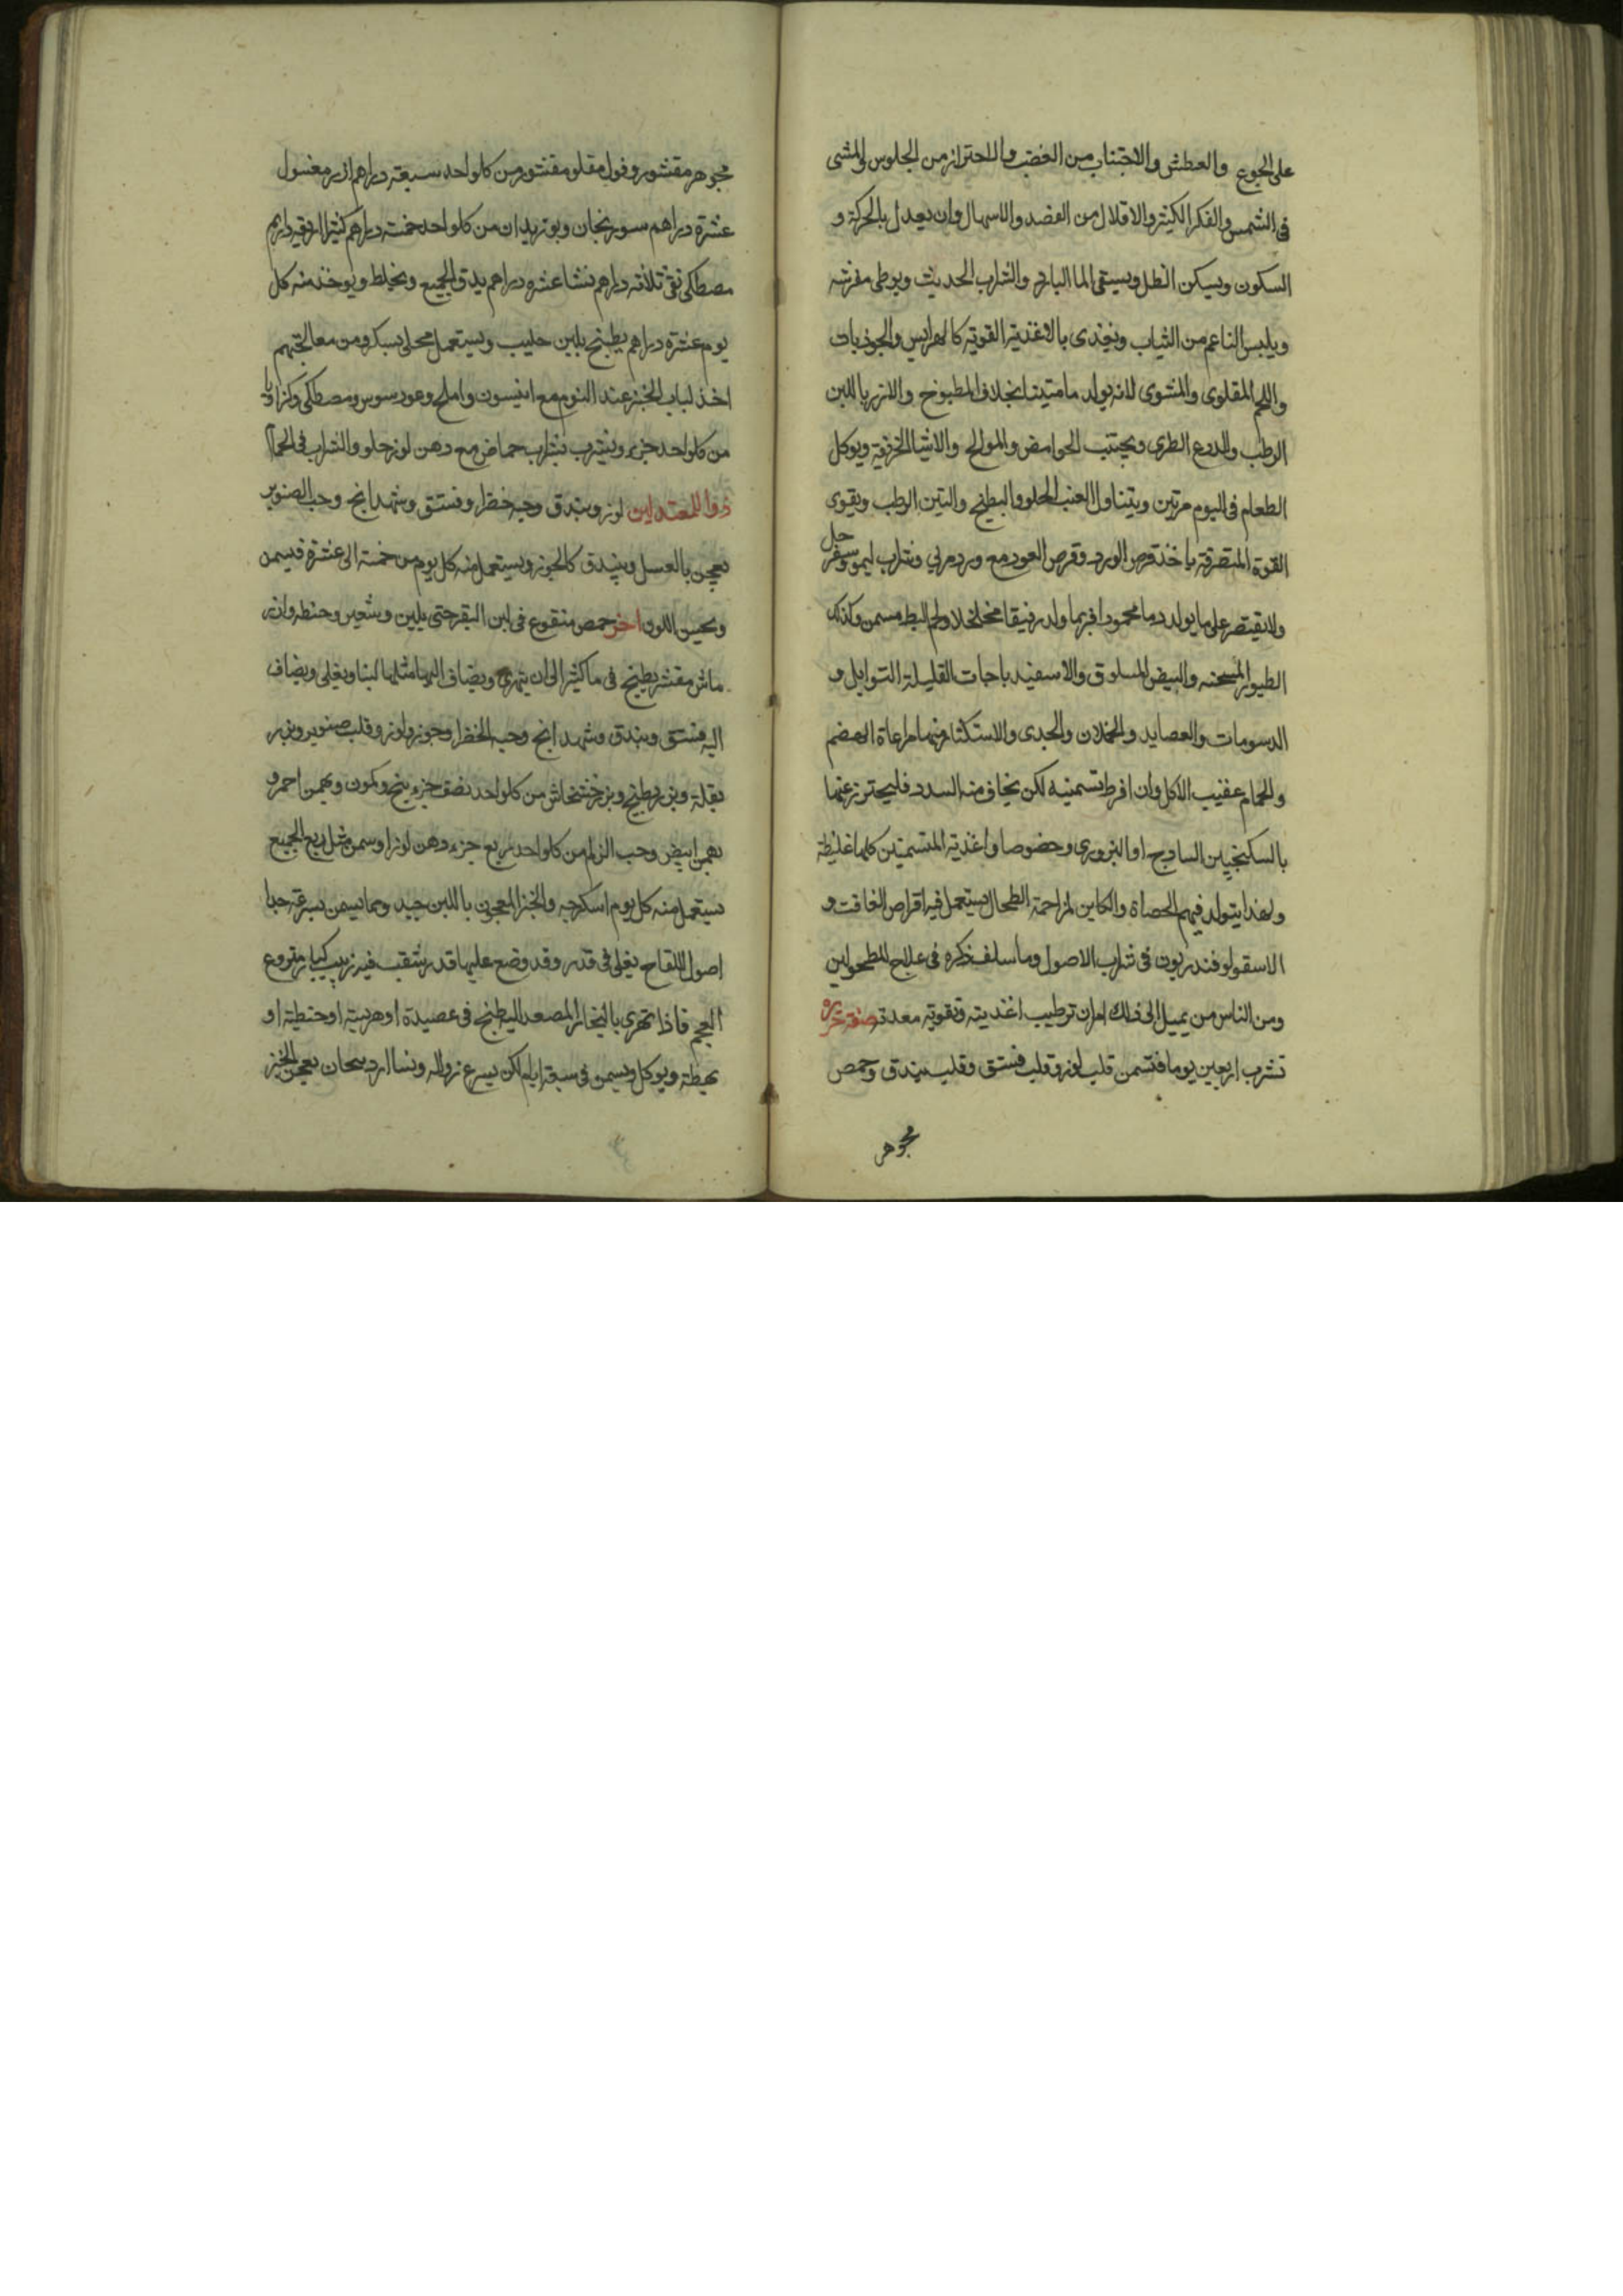 على الجوع والعطش والاجتناب من الغضب والاحتراز من الجلوس والمشى
فى الشمس والفكر الكثير والاقلال من الفصد والاسهال وان يعدل بالحركة و
السكون ويسكن الظل ويسقى الما البارد والشراب الحديث ويوطى مفرشه
ويلبس الناعم من الثياب ويغتدى بالاغذية القوية كالهرايس والجوذبات
واللحم المقلوى والمشوى لانه يولد ما متينا بخلاف المطبوخ والارز باللبن
الرطب والدرع الطرى ويجتنب الحوامض والموالح والاشيا الحريفية ويوكل
الطعام فى اليوم مرتين ويتناول العنب الحلو والبطيخ والتين الرطب ويقوى
القوة المتصرفة باخذ قرص الورد وقرص العود مع ورد مربي وشراب ليمو وسفرجل
ولا يقتصر على ما يولد دما محمودا فربما ولد رقيقا متخلخلا ولحم البط مسمن وكذلك
الطيور المسمنه والبيض المسلوق والاسفيدباجات القليلة التوابل و
الدسومات والعصايد والحملان والجدى والاستكثار منها مراعاة الهضم
والحمام عقيب الاكل وان افرط تسمينه لكن يخاف منه السدد فليحترز عنها
بالسكنجبين السادج او البزورى وخصوصا واغذية المتسمنين كلها غليظة
ولهذا يتولد فيهم الحصاة والكاين لمزاحمة الطحال يستعمل فيه اقراص الغافت و
الاسقولوفندريون فى شراب الاصول وما سلف ذكره فى علاج المطحولين
ومن الناس من يميل الى ذلك امران ترطيب اغذيته وتقوية معدته صفة
تشرب اربعين يوما فتسمن قلب لوز وقلب فستق وقلب بندق وحمص
مجوهر
مجوهر مقشور وفول مقلو مقشور من كل واحد سبعة دراهم ارز مغسول
عشرة دراهم سورنجان وبوزيدان من كل واحد خمسة دراهم كثيرا
مصطكى نقى ثلاثة دراهم نشا عشره دراهم يدق الجميع ويخلط ويوخذ منه كل
يوم عشرة دراهم يطبخ بلبن حليب ويستعمل محلى بسكر ومن معالجتهم
اخذ لباب الخبز عند النوم مع انيسون واملج وعود سوس ومصطكى وكراويا
من كل واحد جزء ويشرب بشراب حماض مع دهن لوز حلو والشراب فى الحمام
دوا للمعتدلين لوز وبندق وحبه خضرا وفستق وشهدانج وحب الصنوبر
يعجن بالعسل ويبندق كالجوز ويستعمل منه كل يوم من خمسة الى عشرة فيسمن
ويحسن اللون اخر حمص منقوع فى لبن البقر حتى يلين وشعير وحنطه وارز
ماش مقشر يطبخ فى ما كثير الى ان يتهرى ويضاف اليها مثلها لبنا ويغلى ويضاف
اليه فستق وبندق وشهدانج وحبه الخضرا وجوز ولوز وقلب صنوبر وبزر
بقلة وبزر بطيخ وبزر خشخاش من كل واحد نصف جزء بنج وكمون وبهمن احمر و
بهمن ابيض وحب الزلم من كل واحد ربع جزء دهن لوز او سمن مثل ربع الجميع
يستعمل منه كل يوم اسكرجه والخبز المعجون باللبن جيد ومما يسمن بسرعة جدا
اصول اللقاح يغلى فى قدر وقد وضع عليها قدر مثقب فيه زبيب كبار منزوع
العجم فاذا تهرى بالبخار المصعد اليطبخ فى عصيدة او هريسة او حنطية او
بهيطة ويوكل ويسمن فى سبعة ايام لكن يسرع زواله ونسا يعجن الخبز